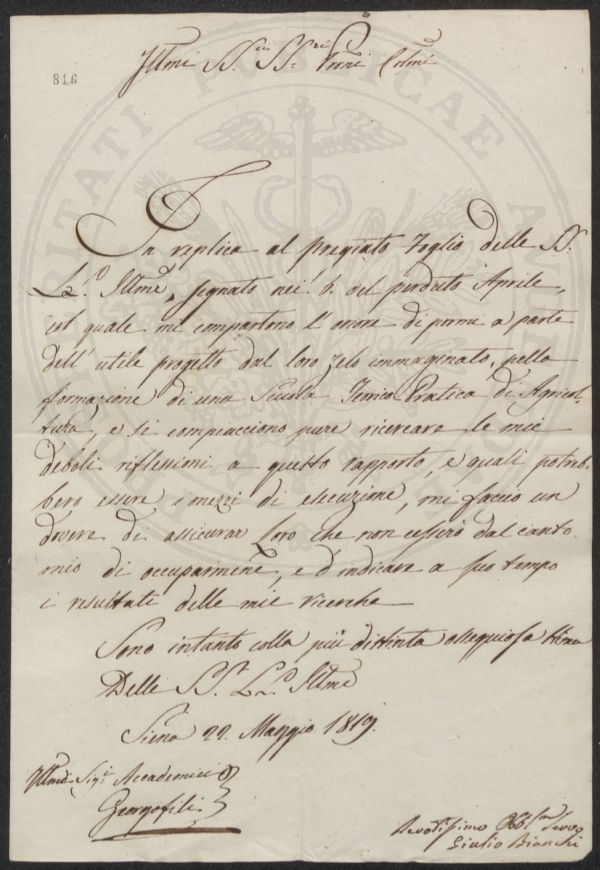 Illmi SS.ri SS.ri Proni Colmi
816
In replica al pregiato Foglio delle SS.
LL.e Illme, segnato nei 6. del perduto Aprile,
col quale mi compartono l'onore di pormi a parte
dell'utile progetto dal loro zelo immaginato, pella
formazione di una Scuola Teorico Pratica di Agricol-
tura, e si compiacciono pure ricercare le mie
deboli riflessioni a questo rapporto, e quali potreb-
bero essere i mezzi di esecuzione, mi faccio un
dovere di assicurar Loro che non cesserò dal canto
mio di occuparmene, e d'indicare a suo tempo
i resultati delle mie ricerche
Sono intanto colla più distinta ossequiosa stima
Delle SS. LL. Illme
Siena 22. Maggio 1819.
Illmi Sigi. Accademici
Georgofili
Devotissimo Obblmo Servo
Giulio Bianchi